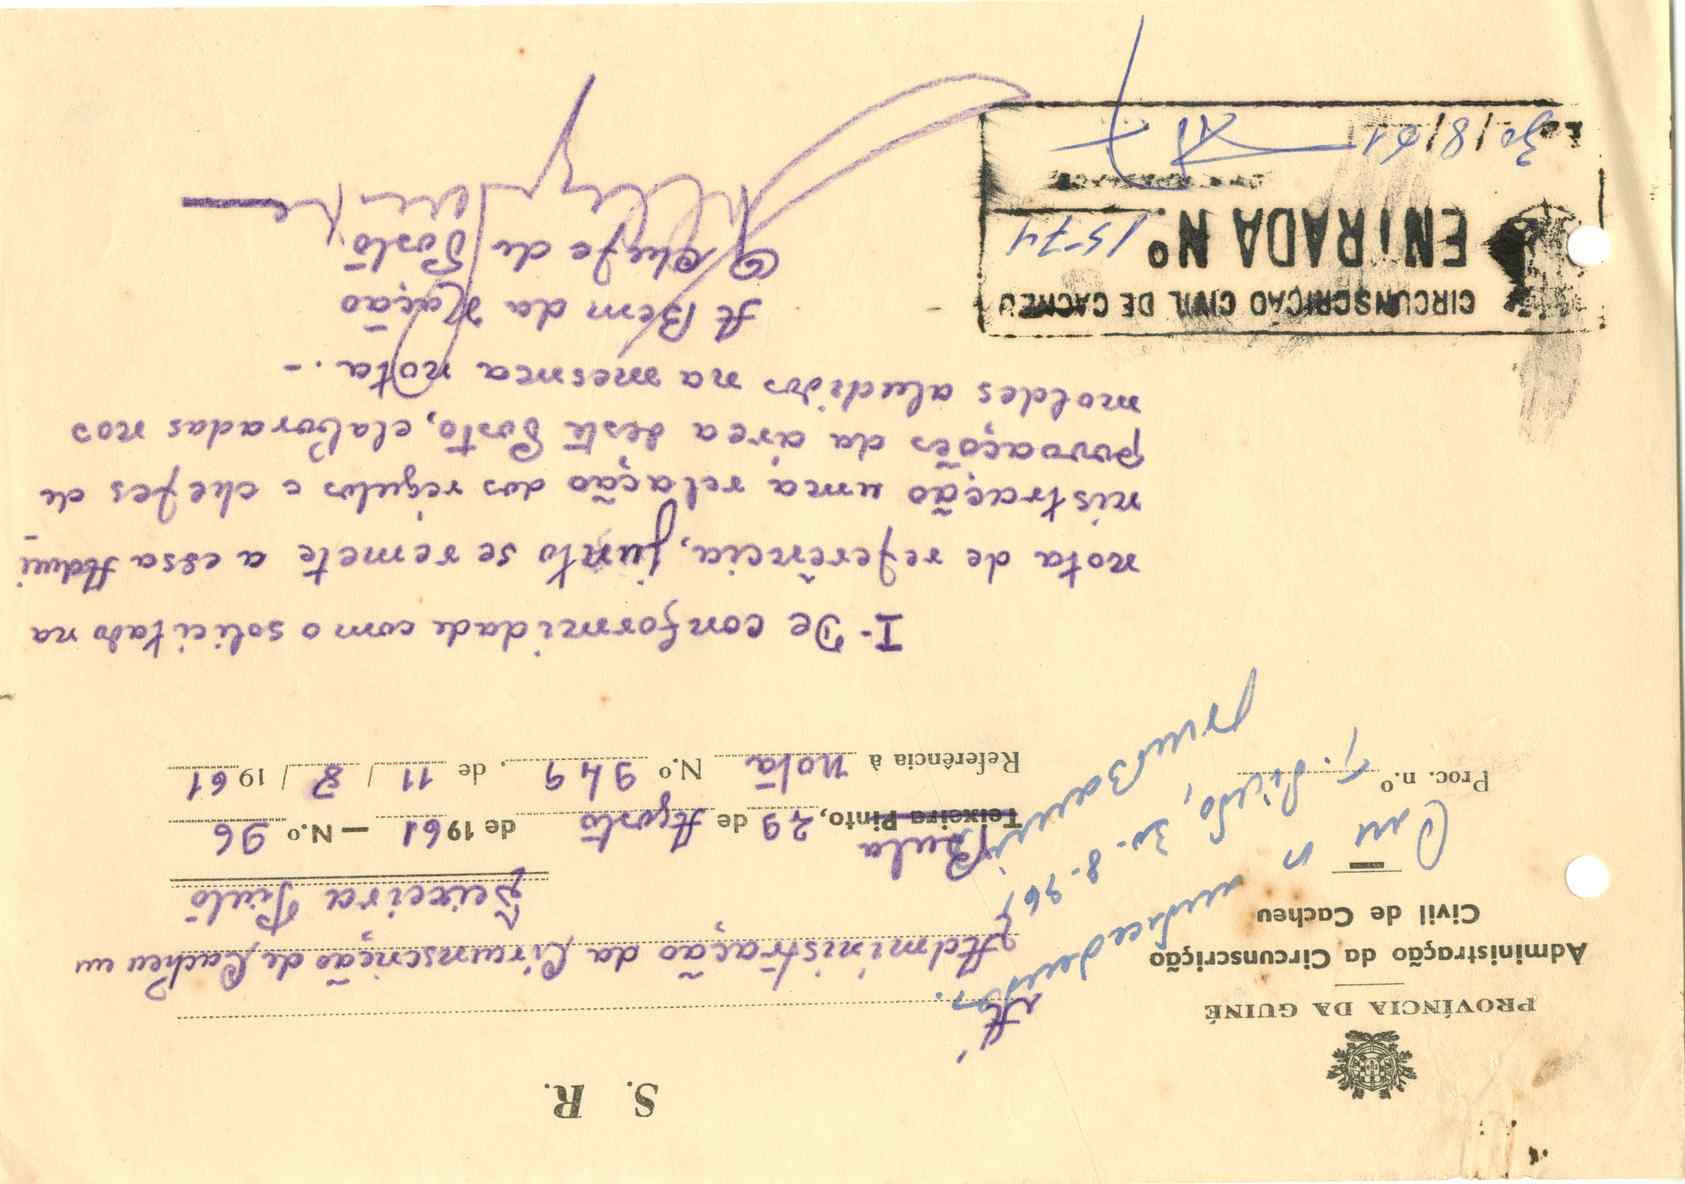 S. R.
PROVÍNCIA DA GUINÉ
Administração da Circunscrição
Civil de Cacheu
Proc. n.º
T. Pinto, 30-8-961
À
Administração da Circunscrição de Cacheu em
Teixeira Pinto
Bula
Teixeira Pinto, 29 de Agosto de 1961 — N.º 96
Referência à nota N.º 949, de 11 / 8 / 1961
I- De conformidade com o solicitado na
nota de referência, junto se remete a essa Admi
nistração uma relação dos régulos e chefes de
povoações da área deste Posto, elaboradas nos
moldes aludidos na mesma nota. -
A Bem da Nação
O chefe de Posto
CIRCUNSCRIÇÃO CIVIL DE CACHEU
ENTRADA Nº 1574
30/8/61